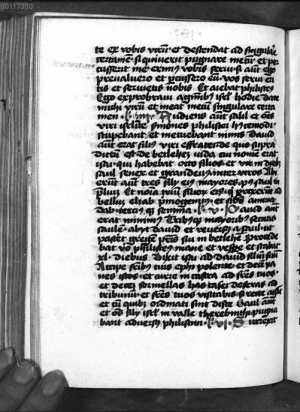 te ex vobis virū et descendat ad singulare
certamē si quiverit pugnare mecū et per
cusserit me erimꝰ vobis servi si aūt ego
prevaluero et percussero eū vos servi eri
tis et servietis nobis Et aiebat philisteꝰ
Ego exprobravi agminibꝫ isrl hodie date
michi virū et ineat mecū singulare certa
men Audiens aūt saul et oms
viri isrlite smones philistei hꝰcemodi
stupebant et metuebant nimis david
aūt erat filꝰ viri effratei de quo supra
dictū est de bethleē iuda cui nomē erat
ysai qui habebat octo filios et erat vir in diebꝫ
saul senex et grandevꝰ inter viros Abi
erūt aūt tres filij eiꝰ maiores pꝰ saul in
p̄liū Et noīa triū filioꝝ eiꝰ qui prexerūt ad
bellū eliab primogenitꝰ et scds amina
dab terciꝰ semma David aūt
erat minimꝰ Tribꝫ maioribꝫ secutis
saulē abijt david et reversꝰ a saul ut
pasceret gregē pris sui in bethleē Procede
bat vo philisteꝰ mane et vespe et stabat
xl diebus Dixit ysai ad david filiū suū
Accipe frībꝫ tuis ephi polente et decē pa
nes istos et curre in castra ad fres tuos
et decē formellas has casei deferes ad
tribunū et fres tuos visitabis si recte agāt
et cū quibꝫ ordinati sint disce Saul aūt
et oēs filij isrl in valle therebinthi pugna
bant adversū philistiim Surrexit